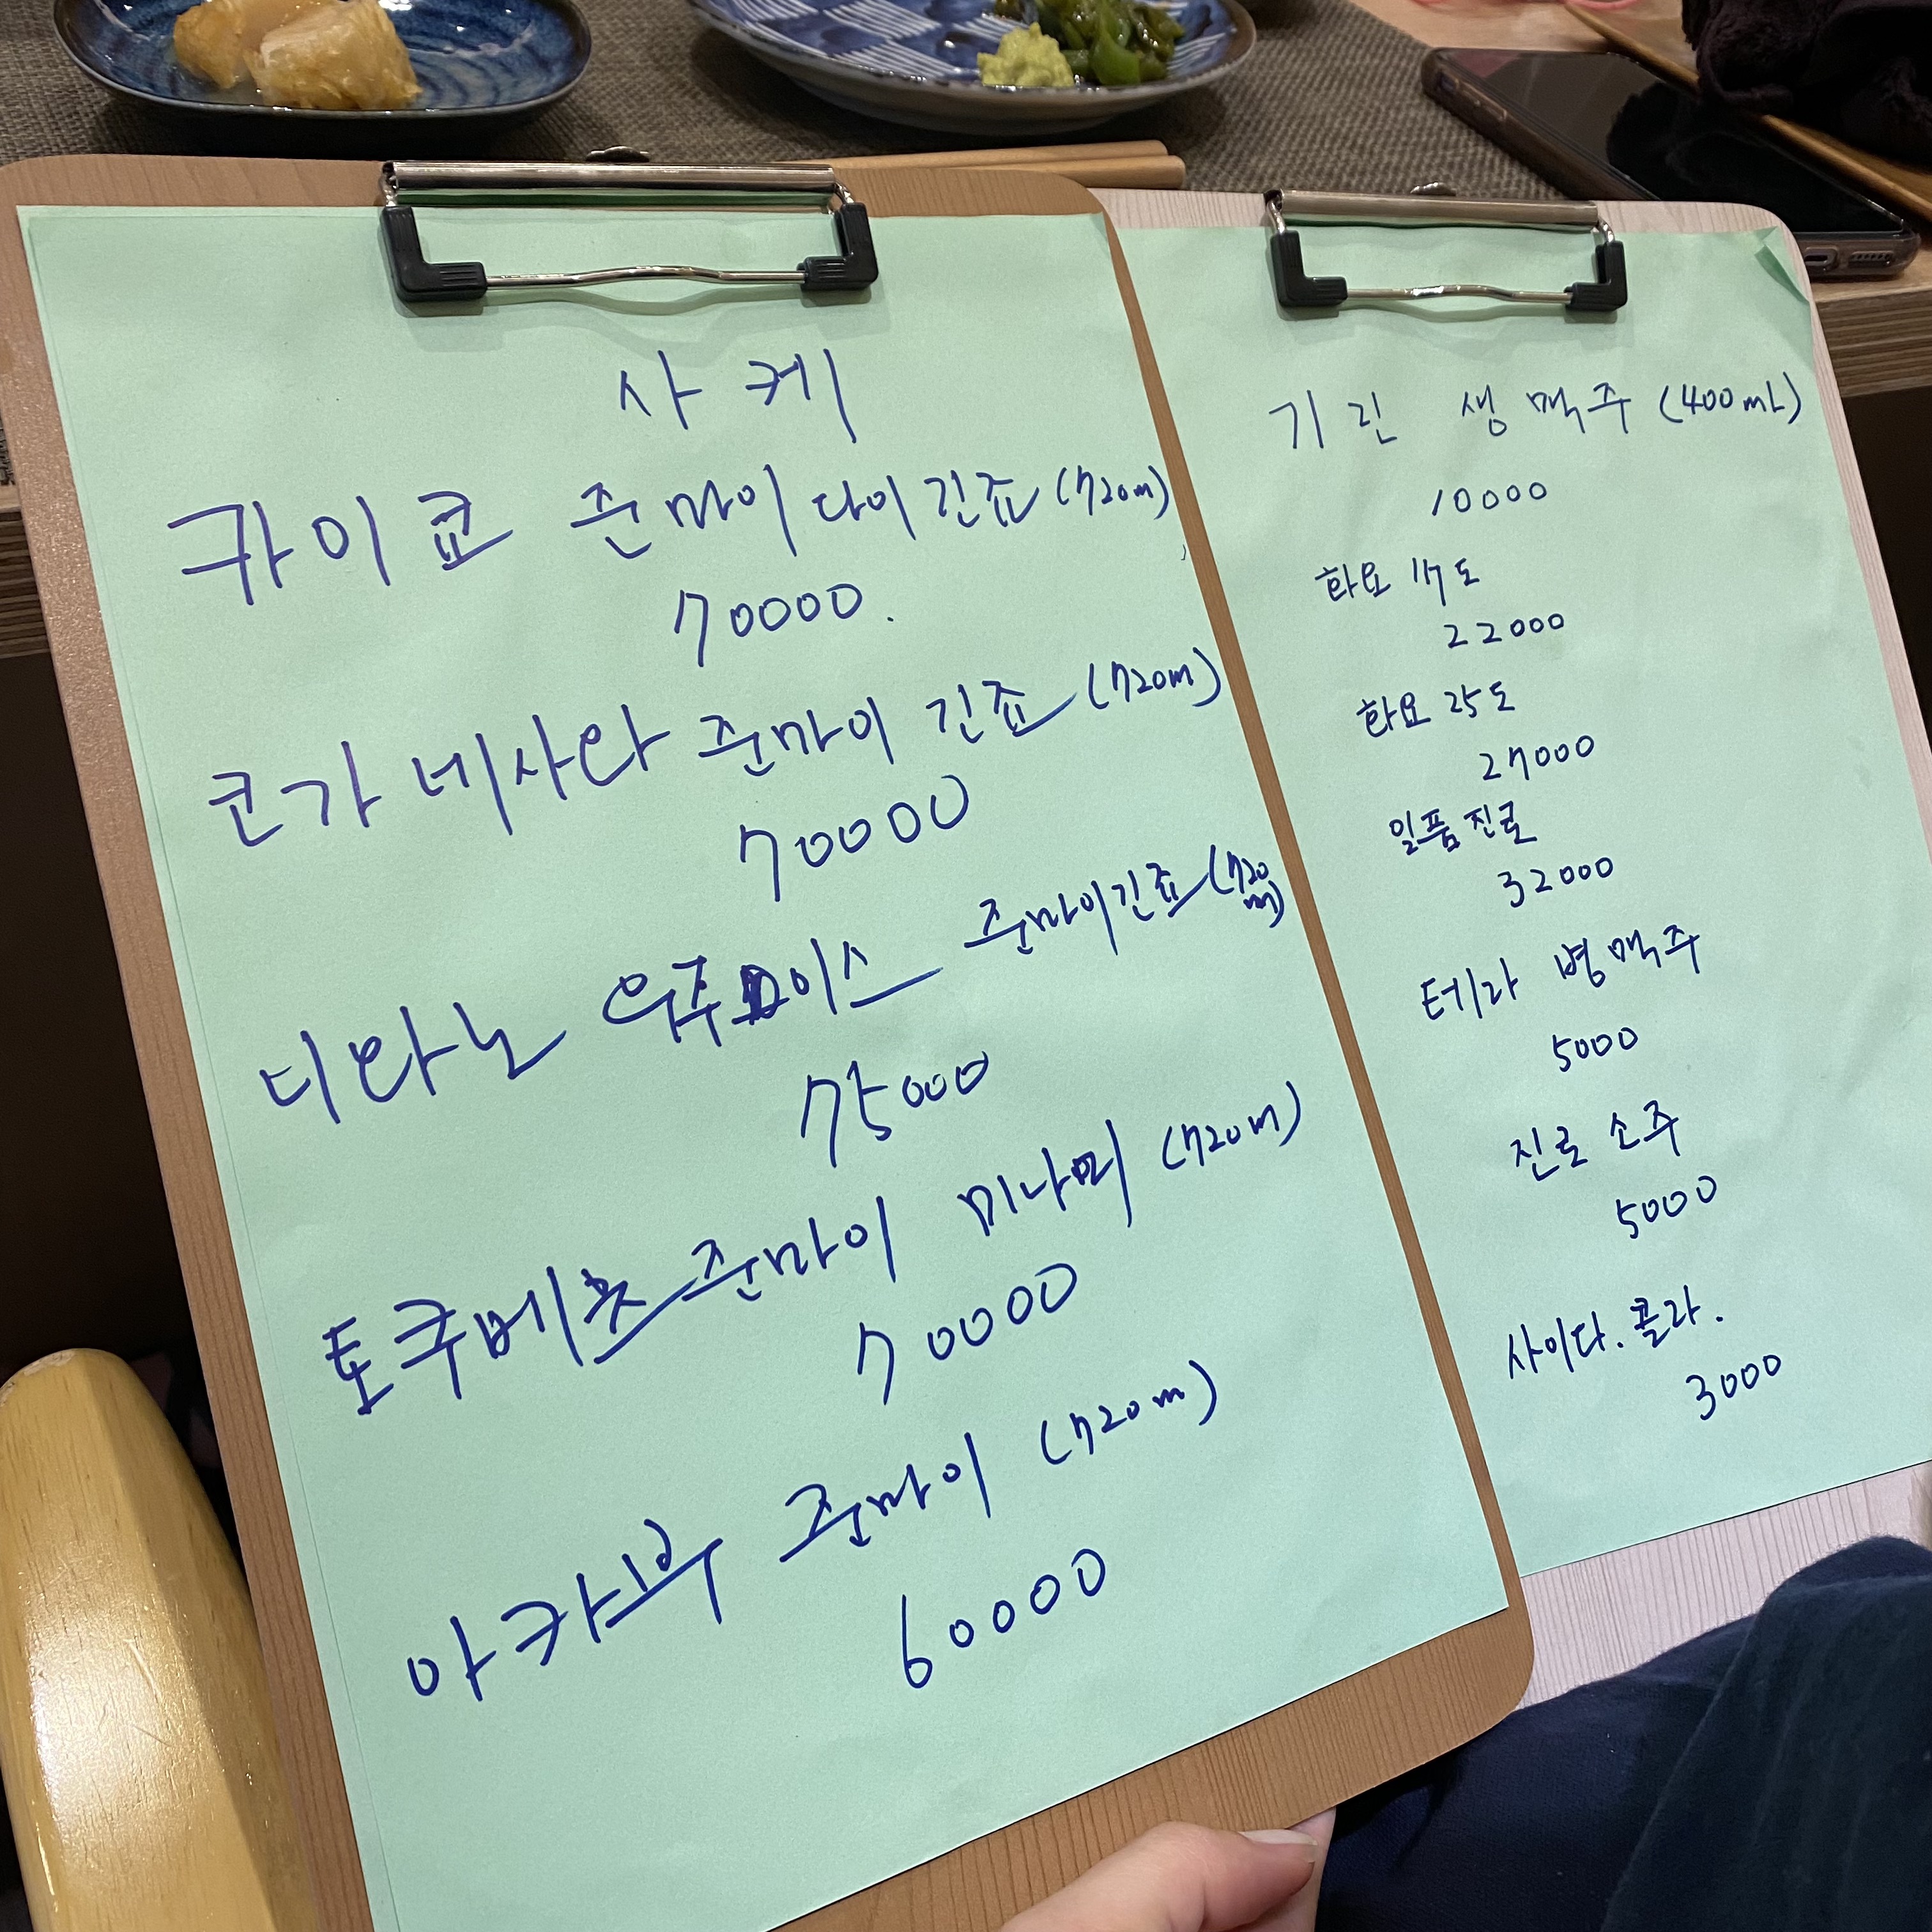 사케
카이쿄 준마이 다이 긴죠 (720m)
70000.
코가 네사라 준마이 긴죠 (720m)
70000
디라노 준마이긴죠 (720
m)
75000
토쿠베츠 준마이 미나미 (720m)
70000
준마이 (720m)
60000
기린 생맥주 (400mL)
10000
화요 17도
22000
화요 25도
27000
일품진로
32000
테라 병맥주
5000
진로 소주
5000
사이다. 콜라.
3000